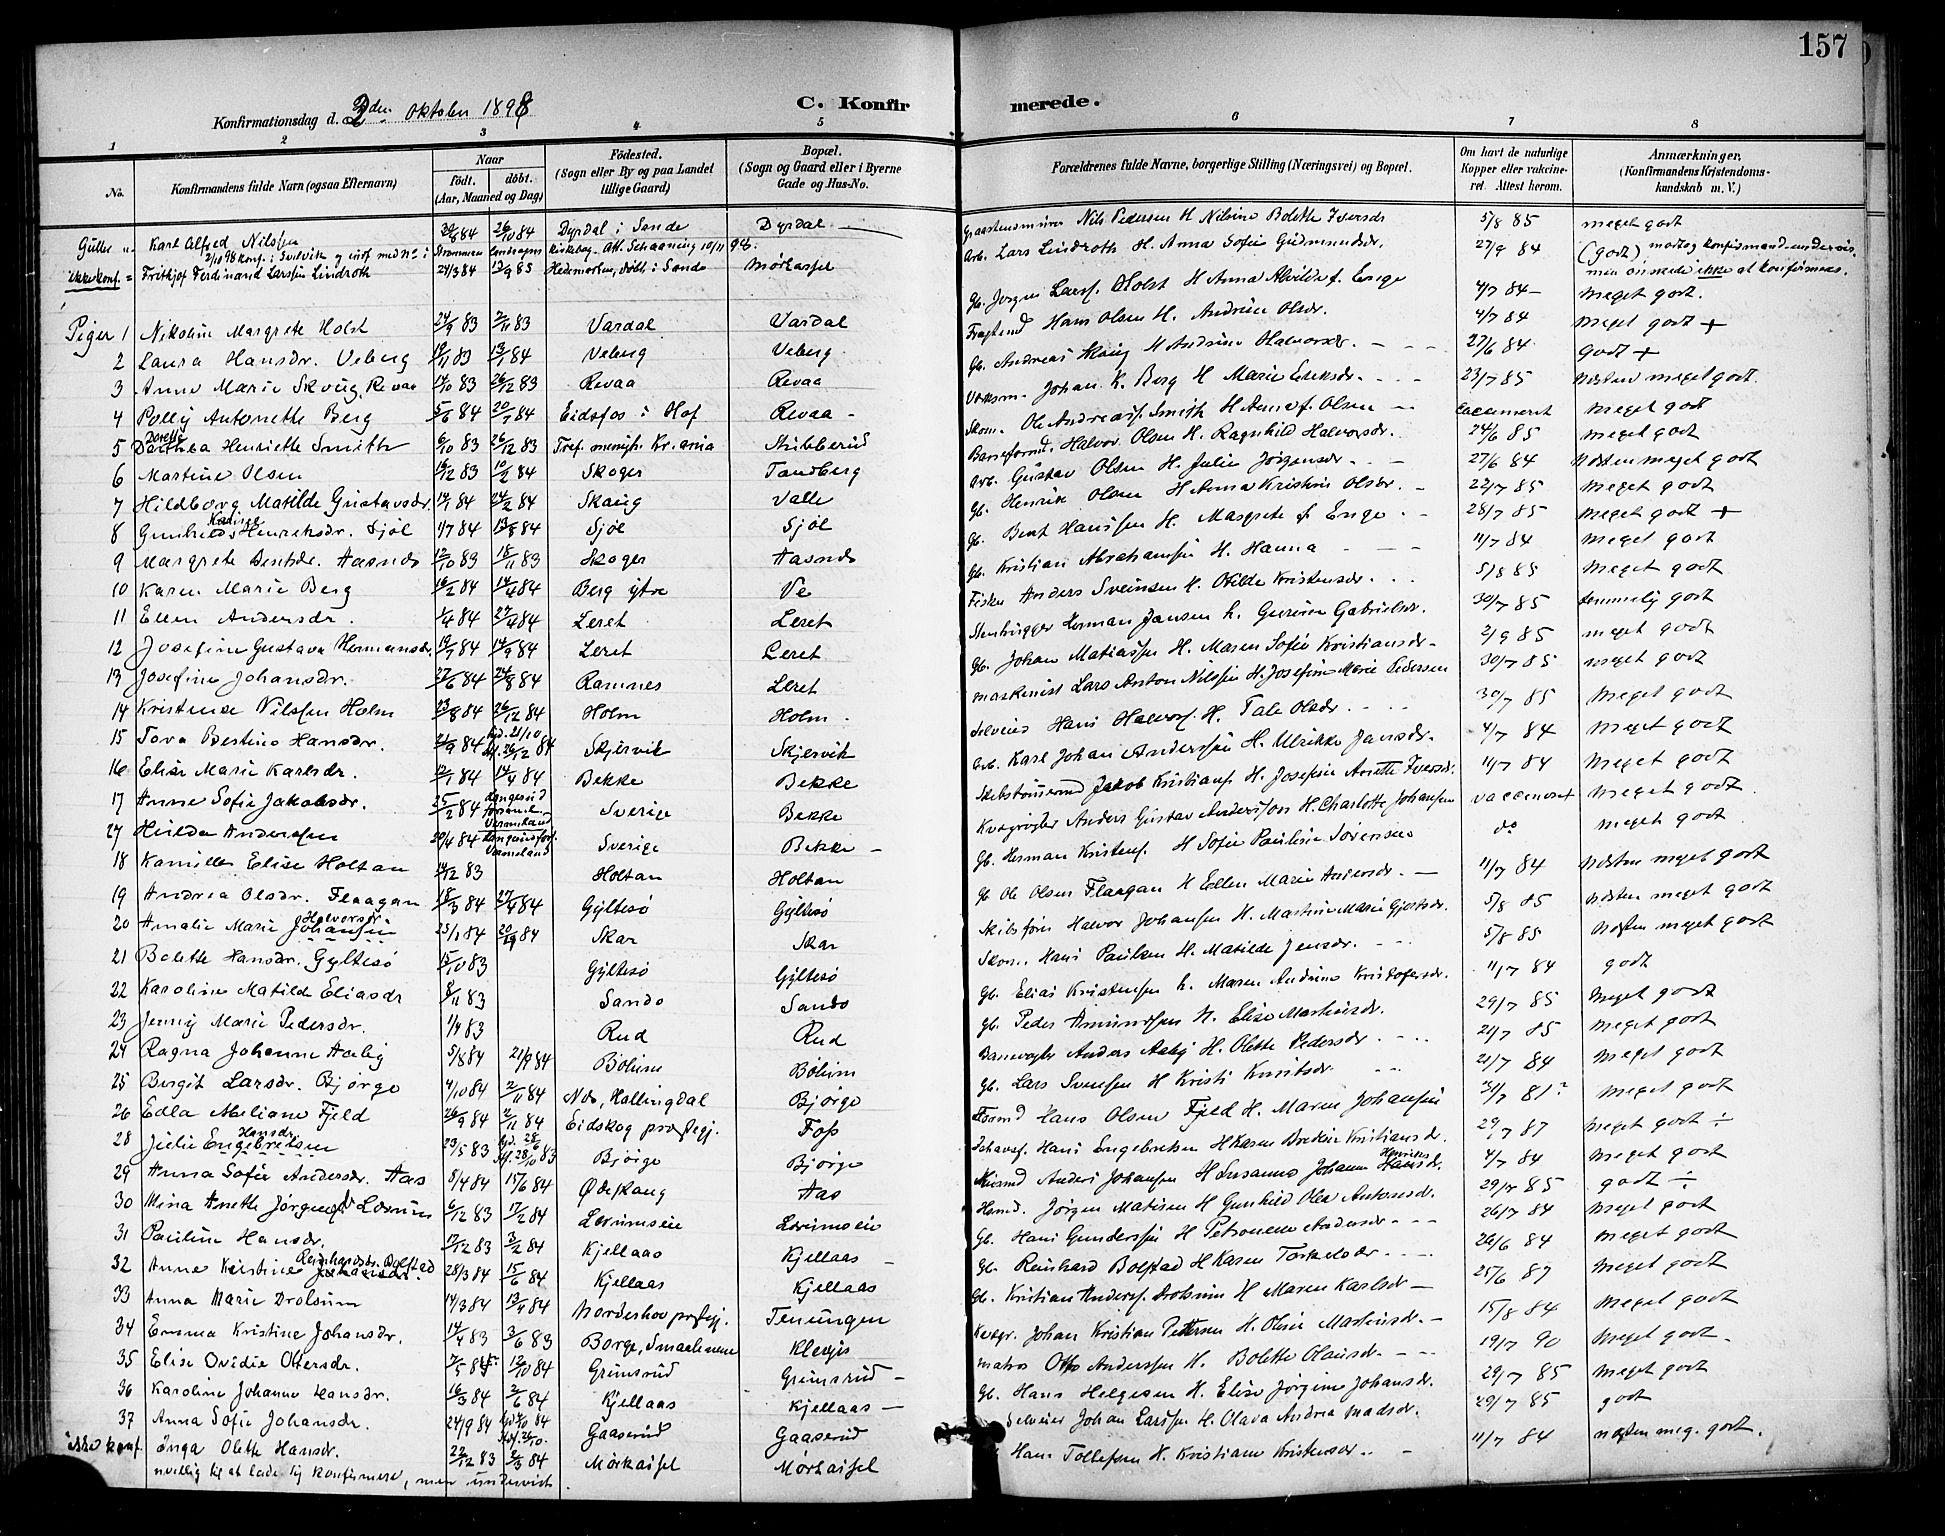 157
Konfirmationsdag d. 2den Oktober 1898
C. Konfirmerede.
1 2 3 4 5 6 7 8
No. Konfirmandens fulde Navn (ogsaa Efternavn) Naar født. døbt. (Aar, Maaned og Dag) Fødested. (Sogn eller By og paa Landet tillige Gaard) Bopæl. (Sogn og Gaard eller i Byerne Gade og Hus-No. Forældrenes fulde Navne, borgerlige Stilling (Næringsvei) og Bopæl. Om havt de naturlige Kopper eller vaccineret. Attest herom. Anmærkninger. (Konfirmandens Kristendomskundskab m. V.)
Karl Alfred Nilssen 84 26/10 84 Dyrdal i Sande Dyrdal Nils Pedersen H Nilsine Bolette Iversdr 5/8 85 meget godt
2/10 98 konf. i Svelvik
ikkekonf. = Fritkjof Ferdinand Larssen Lindroth 24/3 84 13/9 85 Hedemarken, døbt i Sande Mørkassel Arb. Lars Lindroth H. Anna Sofie Gudmundsdr. 27/9 84 (godt) modtog konfirmand-undervis.
men ønskede ikke at konfirmeres.
Piger 1 Nikoline Margrete Holst 24/9 83 2/11 83 Vardal Vardal Gb. Jørgen Larss. Holst H Anna Alvilde f. Enge 4/7 84 Meget godt.
2 Laura Hansdr. Veberg 83 13/1 84 Veberg Veberg Hans Olsen H. Andrine Olsdr. 4/7 84 Meget godt +
3 Anne Marie Skoug, Revaa 83 26/12 83 Revaa Revaa Gb. Andreas Skoug H Andrine Halvorsdr. 27/6 84 Godt +
4 Polly Antonette Berg 5/6 84 20/7 84 Eidsfos i Hof Revaa Johan K. Berg H Marie Eriksdr. 23/7 85 Næsten meget godt.
5 Dorthea Dorette Henriette Smith 6/10 83 26/12 83 Tref. menigh. Kr.ania Skom. Ole Andreass. Smith H Anne f. Olsen vaccineret Meget godt
6 Martine Olsen 83 10/2 84 Skoger Tandberg Halvor Olsen H. Ragnhild Halvorsdr. 24/6 85 Meget godt
7 Hildborg Matilde Gustavsdr. 84 24/2 84 Skaug Valle Arb. Gustav Olsen H. Julie Jørgensdr. 27/6 84 Næsten meget godt
8 Gunhild Karine Henriksdr. Sjøl 1/7 84 13/8 84 Sjøl Sjøl Gb. Henrik Olsen H Anna Kristine Olsdr. 22/7 85 Meget godt
9 Margrete Bentsdr. Aasnes 12/10 83 18/11 83 Skoger Aasnes Gb. Bent Hanssen H. Margrete f Enge 28/7 85 Meget godt +
10 Karen Marie Berg 16/2 84 14/4 84 Berg ytre Ve Gb. Kristian Abrahamsen H. Hanna 11/7 84 Meget godt
11 Ellen Andersdr. 84 27/4 84 Leret Leret Fisker Anders Sveinsen H. Otilde Kristensdr. 5/8 85 Meget godt
12 Josefine Gustava Hermansdr. 84 14/9 84 Leret Leret Stenhugger Herman Jansen h. Gurine Gabrielsdr. 30/7 85 temmelig godt
13 Josefine Johansdr. 27/6 84 24/8 84 Ramnes Leret Gb. Johan Matiassen H. Maren Sofie Kristiansdr. 2/9 85 meget godt
14 Kristense Nilssen Holm 23/8 84 26/12 84 Holm Holm Maskinist Lars Anton Nilssen H. Josefine Marie Pedersen 30/7 85 meget godt
15 Tora Bertine Hansdr. 21/9 84 26/12 84 Skjervik Skjervik Selveier Hans Halvors. H. Tale Olsdr. 30/7 85 Meget godt
16 Elise Marie Karlsdr. 12/1 84 14/4 84 Bekke Bekke Arb. Karl Johan Anderssen H. Ulrikke Jansdr. 4/7 84 Meget godt
17 Anne Sofie Jakobsdr. 25/2 84 Sverige Bekke Jakob Kristians. H. Josefine Anette Iversdr. 11/7 84 Meget godt
27 Hilda Andersson 84 Vermeland Sverige Bekke Anders Gustav Andersson H. Charlotte Johansen vaccineret Meget godt.
18 Kamilla Elise Holtan 83 Holtan Holtan Gb. Herman Kristens. H Sofie Pauline Sørensen do meget godt
19 Andrea Olsdr. Flaagan 18/3 84 27/4 84 Gyltesø Gyltesø Gb Ole Olsen Flaagan H Ellen Marie Andersdr. 11/7 84 Næsten meget godt
20 Amalie Marie Johansen Halvorsdr. 25/1 84 84 Skar Skar Skibsfører Halvor Johansen H. Martine Marie Gjertsdr. 5/8 85 Næsten meget godt
21 Bolette Hansdr. Gyltesø 15/10 83 Gyltesø Gyltesø Skom. Hans Paulsen H. Matilde Jensdr. 5/8 85 Næsten meget godt
22 Karoline Matilde Eliasdr 8/11 83 Sando Sando Gb. Elias Kristensen h. Maren Andrine Kristofersdr. 11/7 84 godt
23 Jenny Marie Pedersdr. 83 Rud Rud Gb. Peder Amundssen H. Elise Martinsdr. 29/7 85 Meget godt
24 Ragna Johanne Aaby 5/8 84 84 Bølum Bølum Banevogter Anders Aaby H. Olette Pedersdr. 21/7 85 Meget godt
25 Birgit Larsdr. Bjørge 4/10 84 2/11 84 Nes, Hallingdal Bjørge Gb. Lars Svensen H Kristi Knutsdr. 21/7 84 Meget godt
26 Edla Meliane Fjeld 26/9 84 2/11 84 Eidskog præstegj. Foss Hans Olsen Fjeld H. Maren Johansen 31/7 81? meget godt
28 Julie Engebretsen Hansdr. 23/5 83 83 Bjørge Bjørge Hans Engebretsen H Karen Bredine Kristiansdr. 29/7 87 meget godt ÷
29 Anna Sofie Andersdr. Aas 5/4 84 15/6 84 Ødeskaug Aas Anders Johansen H Susanne Johanne Hansdr. 4/7 84 Meget godt
30 Mina Anette Jørgensdr Lerum 6/12 83 17/2 84 Lerumseie Lerumseie Jørgen Matisen H Gunhild Olea Antonsdr. 29/7 85 godt ÷
31 Pauline Hansdr. 17/12 83 3/2 84 Kjellaas Kjellaas Gb. Hans Gunderssen H Petronelle Andersdr. 26/7 84 Meget godt
32 Anna Kristine Reinhardsdr. Bolstad 28/3 84 15/6 84 Kjellaas Kjellaas Gb. Reinhard Bolstad H Karen Torkelsdr. 26/6 84 Meget godt
33 Anna Marie Drolsum 14/3 84 13/4 84 Norderhov præstegj. Tenungen Gb. Kristian Anderss. Drolsum H Maren Karlsdr 25/6 87 Meget godt
34 Emma Kristine Johansdr. 14/4 83 3/6 83 Borge, Smaalenene Klevjer Johan Kristian Pettersen H. Oline Martinsdr. 15/8 84 Meget godt
35 Elise Ovidie Ottersdr. 12/10 84 Grimsrud Grimsrud Matros Otto Anderssen H. Bolette Olausdr. 19/7 90 Meget godt.
36 Karoline Johanne Hansdr. 16/3 84 2/6 84 Kjellaas Kjellaas Gb. Hans Helgesen H. Elise Jørgine Johansdr. 29/7 85 Meget godt
37 Anna Sofie Johansdr. 24/9 84 84 Gaaserud Gaaserud Selveier Johan Larssen H. Olava Andrea Madsdr. 29/7 85 godt
ikke konf. Inga Olette Hansdr. 22/12 83 2/3 84 Mørkassel Mørkassel Hans Tollefsen H. Kristiane Kristensdr. 11/7 84 næsten meg. godt.
uvillig til at lade sig konfirmere, men undervist.